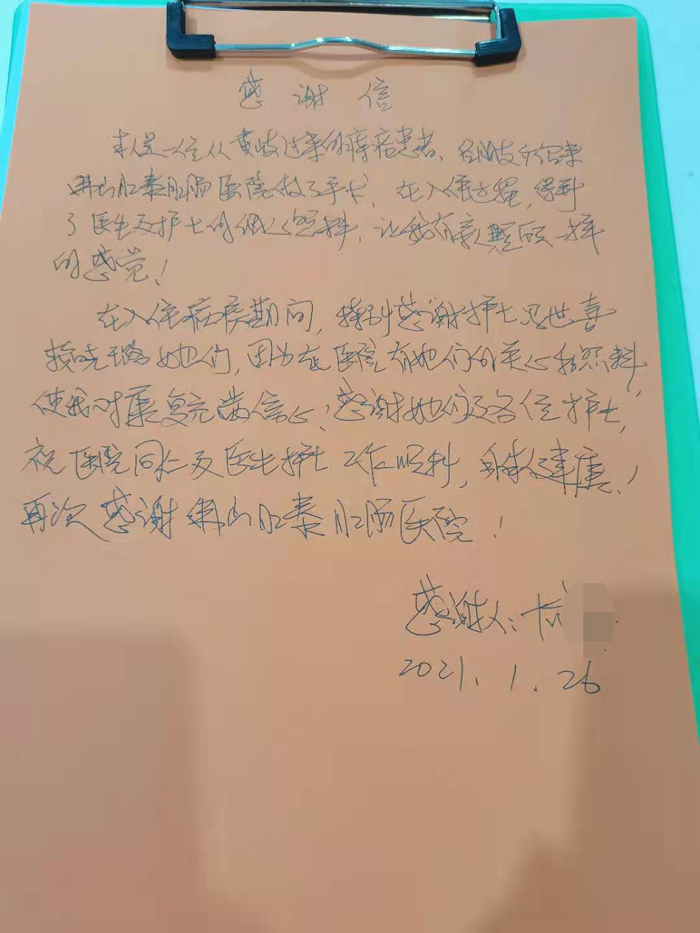 感谢信
本人是一位从黄岐过来的痔疮患者,
佛山肛泰肛肠医院做了手术,在入住过程,得到
了医生及护士的细心照料,让我有亲 一样
的感觉!
在入住 期间,特别感谢护士 世喜
晓璐她们,因为在医院有她们的关心和照料
使我对康复充满信心!感谢她们及各位护士,
祝医院同仁及医生护士工作顺利,身体健康!
再次感谢佛山肛泰肛肠医院!
感谢人:
2021.1.26